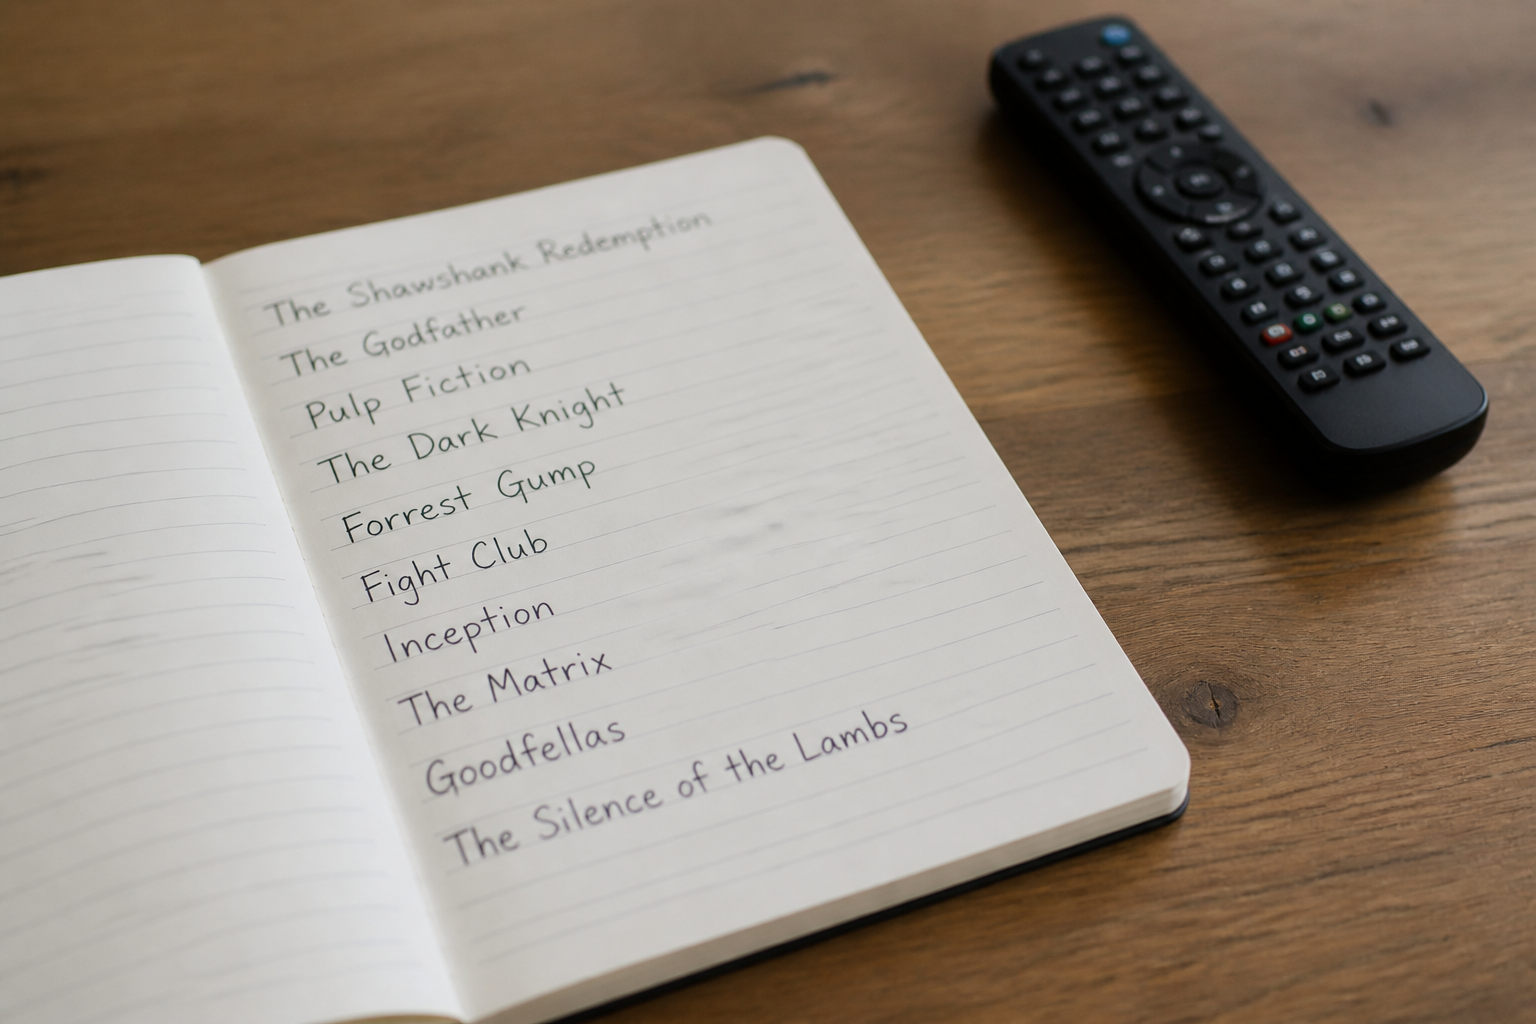 The Shawshank Redemption
The Godfather
Pulp Fiction
The Dark Knight
Forrest Gump
Fight Club
Inception
The Matrix
Goodfellas
The Silence of the Lambs